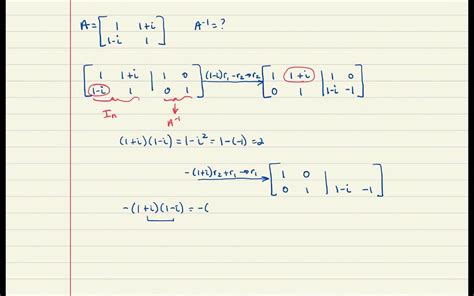 A = [ 1 1+i ] A⁻¹ = ?
[ 1-i 1 ]
[ 1 1+i | 1 0 ] (1-i)r₁ - r₂ → r₂ [ 1 1+i | 1 0 ]
[ 1-i 1 | 0 1 ] [ 0 1 | 1-i -1 ]
Iₙ A⁻¹
(1+i)(1-i) = 1-i² = 1-(-1) = 2
-(1+i)r₂ + r₁ → r₁ [ 1 0 | ]
[ 0 1 | 1-i -1 ]
-(1+i)(1-i) = -(